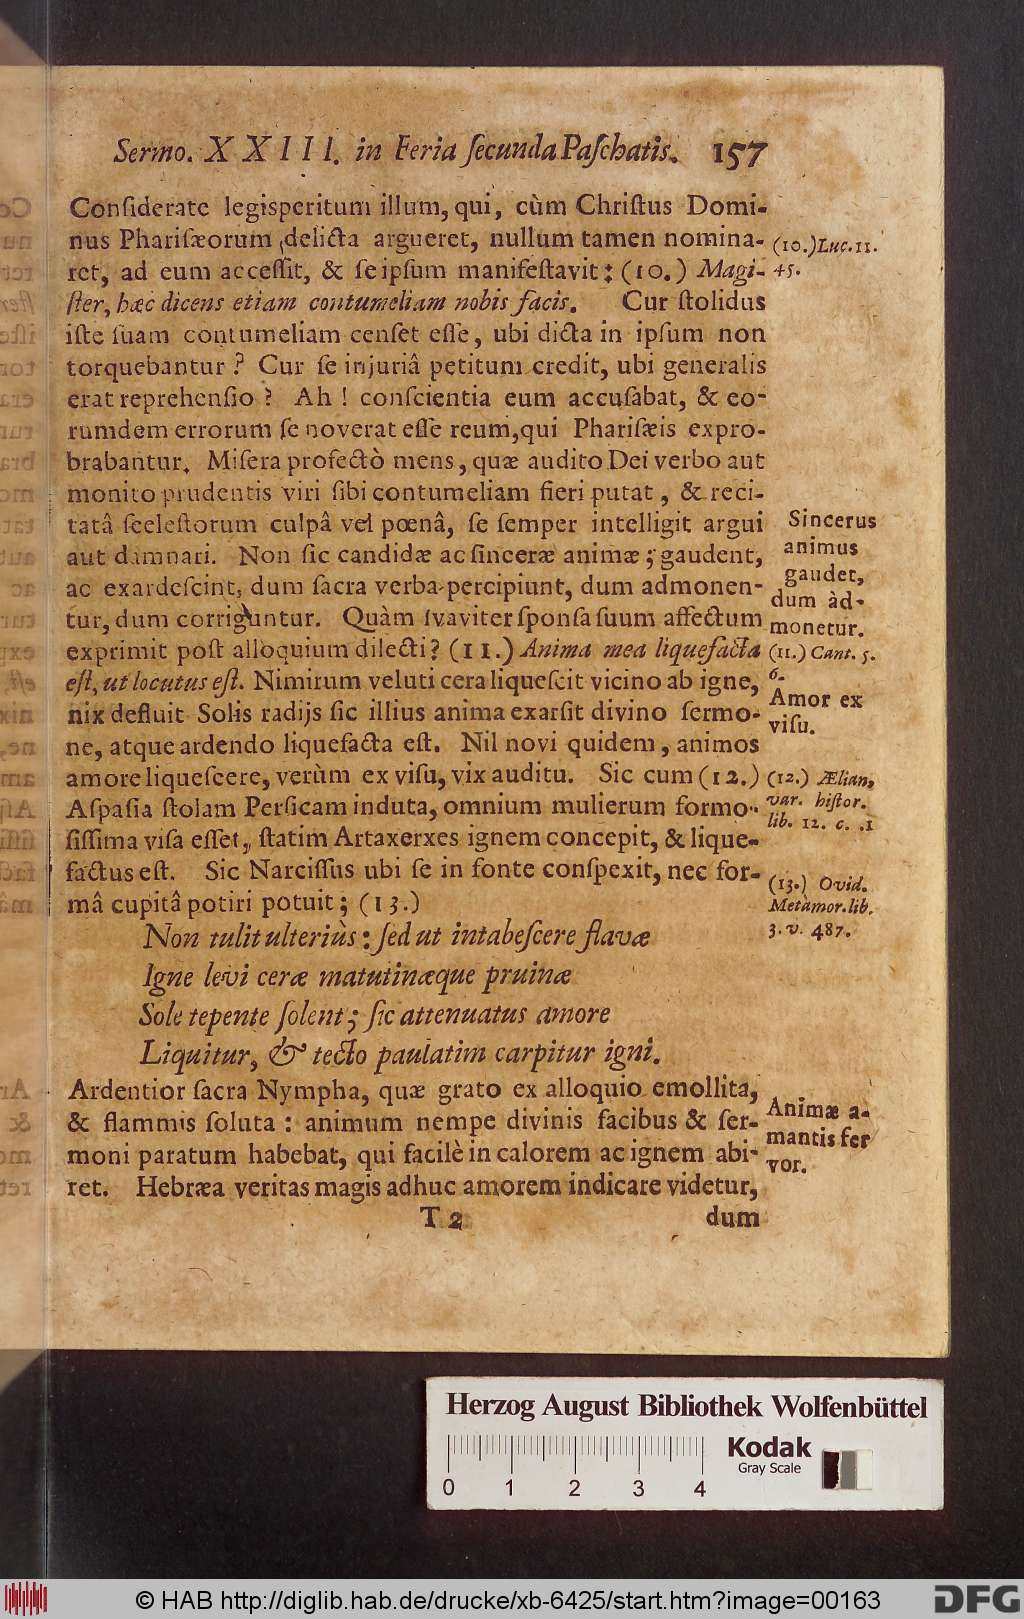 Sermo. XXIII. in Feria ſecunda Paſchatis. 157
Conſiderate legisperitum illum, qui, cùm Chriſtus Domi-
nus Phariſæorum delicta argueret, nullum tamen nomina-
ret, ad eum acceſſit, & ſe ipſum manifeſtavit: (10.) Magi-
ſter, hæc dicens etiam contumeliam nobis facis. Cur ſtolidus
iſte ſuam contumeliam cenſet eſſe, ubi dicta in ipſum non
torquebantur? Cur ſe injuriâ petitum credit, ubi generalis
erat reprehenſio? Ah! conſcientia eum accuſabat, & eo-
rumdem errorum ſe noverat eſſe reum, qui Phariſæis expro-
brabantur. Miſera profectò mens, quæ audito Dei verbo aut
monito prudentis viri ſibi contumeliam fieri putat, & reci-
tatâ ſceleſtorum culpâ vel pœnâ, ſe ſemper intelligit argui
aut damnari. Non ſic candidæ ac ſinceræ animæ; gaudent,
ac exardeſcint, dum ſacra verba percipiunt, dum admonen-
tur, dum corriguntur. Quàm ſvaviter ſponſa ſuum affectum
exprimit poſt alloquium dilecti? (11.) Anima mea liquefacta
eſt, ut locutus eſt. Nimirum veluti cera liqueſcit vicino ab igne,
nix defluit Solis radijs ſic illius anima exarſit divino ſermo-
ne, atque ardendo liquefacta eſt. Nil novi quidem, animos
amore liqueſcere, verùm ex viſu, vix auditu. Sic cum (12.)
Aſpaſia ſtolam Perſicam induta, omnium mulierum formo-
ſiſſima viſa eſſet, ſtatim Artaxerxes ignem concepit, & lique-
factus eſt. Sic Narciſſus ubi ſe in fonte conſpexit, nec for-
mâ cupitâ potiri potuit; (13.)
Non tulit ulteriùs: ſed ut intabeſcere flavæ
Igne levi ceræ matutinæque pruinæ
Sole tepente ſolent; ſic attenuatus amore
Liquitur, & tecto paulatim carpitur igni.
Ardentior ſacra Nympha, quæ grato ex alloquio emollita,
& flammis ſoluta: animum nempe divinis facibus & ſer-
moni paratum habebat, qui facilè in calorem ac ignem abi-
ret. Hebræa veritas magis adhuc amorem indicare videtur,
T 2 dum
(10.) Luc. 11.
45.
Sincerus
animus
gaudet,
dum ad-
monetur.
(11.) Cant. 5.
6.
Amor ex
viſu.
(12.) Ælian,
var. hiſtor.
lib. 12. c. 1
(13.) Ovid.
Metamor. lib.
3. v. 487.
Animæ a-
mantis fer
vor.
Herzog August Bibliothek Wolfenbüttel
Kodak
Gray Scale
0 1 2 3 4
© HAB http://diglib.hab.de/drucke/xb-6425/start.htm?image=00163
DFG